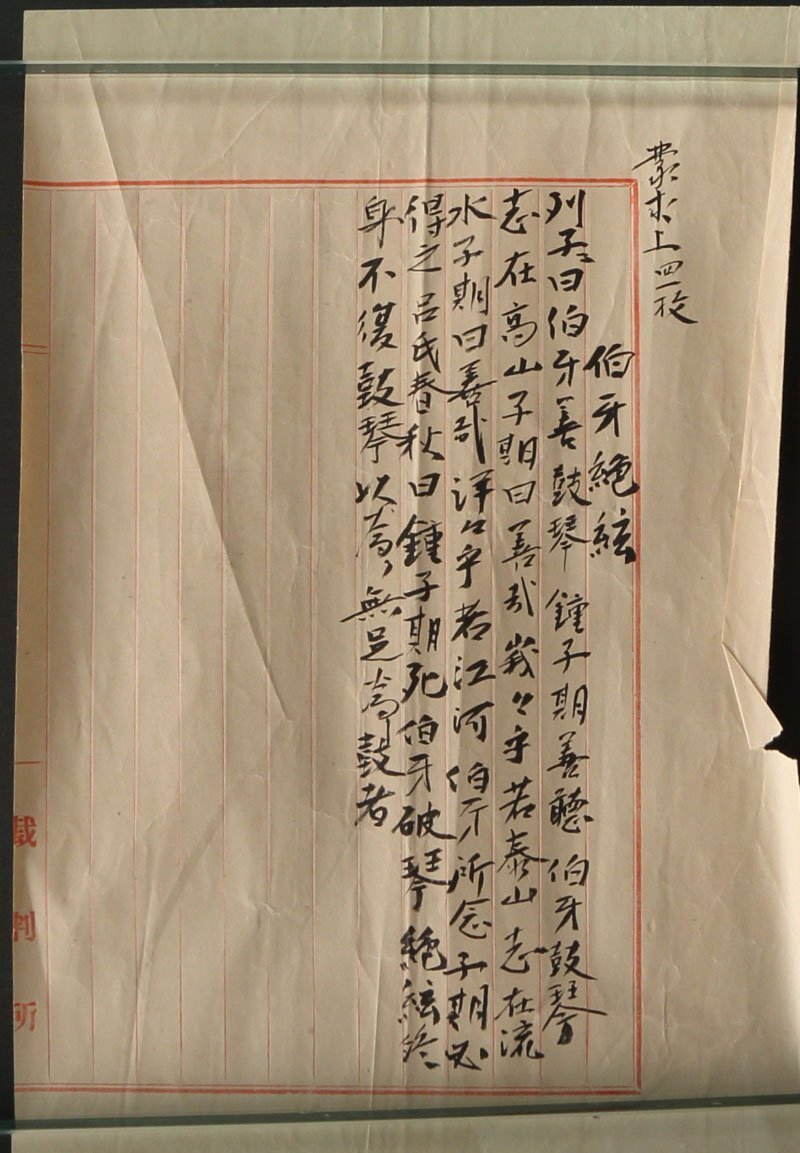 蒙求上四一枚
伯牙絶絃
列子曰伯牙善鼓琴鍾子期善聽伯牙鼓琴
志在高山子期曰善哉峩々乎若泰山志在流
水子期曰善哉洋々乎若江河伯牙所念子期必
得之呂氏春秋曰鍾子期死伯牙破琴絶絃終
身不復鼓琴以為無足為鼓者
裁判所